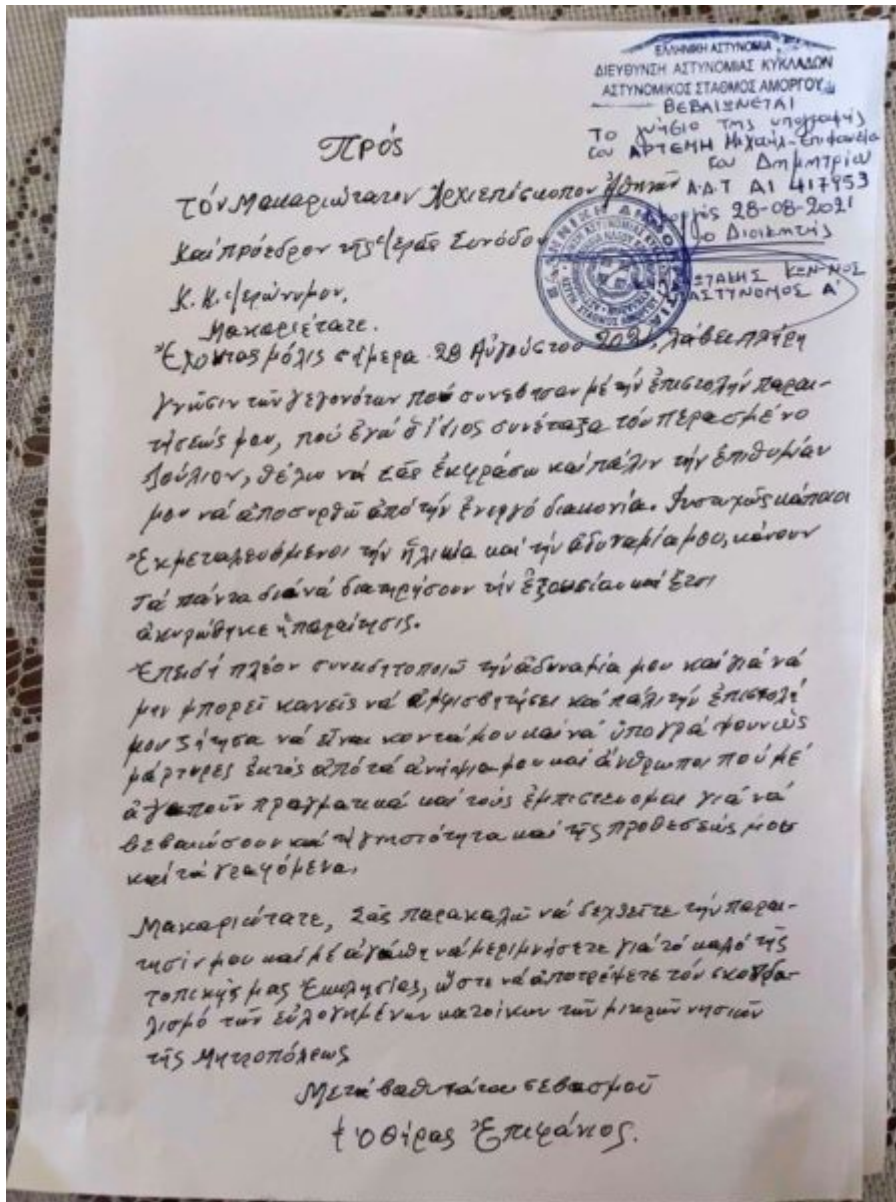 ΕΛΛΗΝΙΚΗ ΑΣΤΥΝΟΜΙΑ
ΔΙΕΥΘΥΝΣΗ ΑΣΤΥΝΟΜΙΑΣ ΚΥΚΛΑΔΩΝ
ΑΣΤΥΝΟΜΙΚΟΣ ΣΤΑΘΜΟΣ ΑΜΟΡΓΟΥ
ΒΕΒΑΙΩΝΕΤΑΙ
Το γνήσιο της υπογραφής
του ΑΡΤΕΜΗ Μιχαήλ-Επιφανεία
του Δημητρίου
Α.Δ.Τ ΑΙ 417953
28-08-2021
ο Διοικητής
ΚΩΝ-ΝΟΣ
ΑΣΤΥΝΟΜΟΣ Α'
Πρός
τόν Μακαριώτατον Ἀρχιεπίσκοπον Ἀθηνῶν
Καί πρόεδρον τῆς Ἱερᾶς Συνόδου
Κ.Κ. Ἱερώνυμον.
Μακαριότατε.
Ἔχοντας μόλις σήμερα 28 Αὐγούστου 2021, λάβει πλήρη
γνῶσιν τῶν γεγονότων πού συνέβησαν μέ τήν ἐπιστολήν παραι-
τήσεώς μου, πού ἐγώ ὁ ἴδιος συνέταξα τόν περασμένο
Ἰούλιον, θέλω νά Σᾶς ἐκφράσω καί πάλιν τήν ἐπιθυμίαν
μου νά ἀποσυρθῶ ἀπό τήν ἐνεργό διακονία. Δυστυχῶς κάποιοι
Ἐκμεταλευόμενοι τήν ἡλικία καί τήν ἀδυναμία μου, κάνουν
τά πάντα διά νά διατηρήσουν τήν ἐξουσίαν καί ἔτσι
ἀκυρώθηκε ἡ παραίτησις.
Ἐπειδή πλέον συνειδητοποιῶ τήν ἀδυναμία μου καί γιά νά
μην μπορεῖ κανείς νά ἀμφισβητήσει καί πάλι τήν ἐπιστολή
μου ζήτησα νά εἶναι κοντά μου καί νά ὑπογράψουν ὡς
μάρτυρες ἐκτός ἀπό τά ἀνήψια μου καί ἄνθρωποι πού μέ
ἀγαποῦν πραγματικά καί τούς ἐμπιστεύομαι γιά νά
βεβαιώσουν καί τή γνησιότητα καί τῆς προθέσεώς μου
καί τά γραφόμενα.
Μακαριώτατε, Σᾶς παρακαλῶ νά δεχθεῖτε τήν παραί-
τησίν μου καί μέ ἀγάπη νά μεριμνήσετε γιά τό καλό τῆς
τοπικῆς μας Ἐκκλησίας, ὥστε νά ἀποτρέψετε τόν σκανδα-
λισμό τῶν εὐλογημένων κατοίκων τῶν μικρῶν νησιῶν
τῆς Μητροπόλεως
Μετά βαθυτάτου σεβασμοῦ
† Ὁ Θήρας Ἐπιφάνιος.